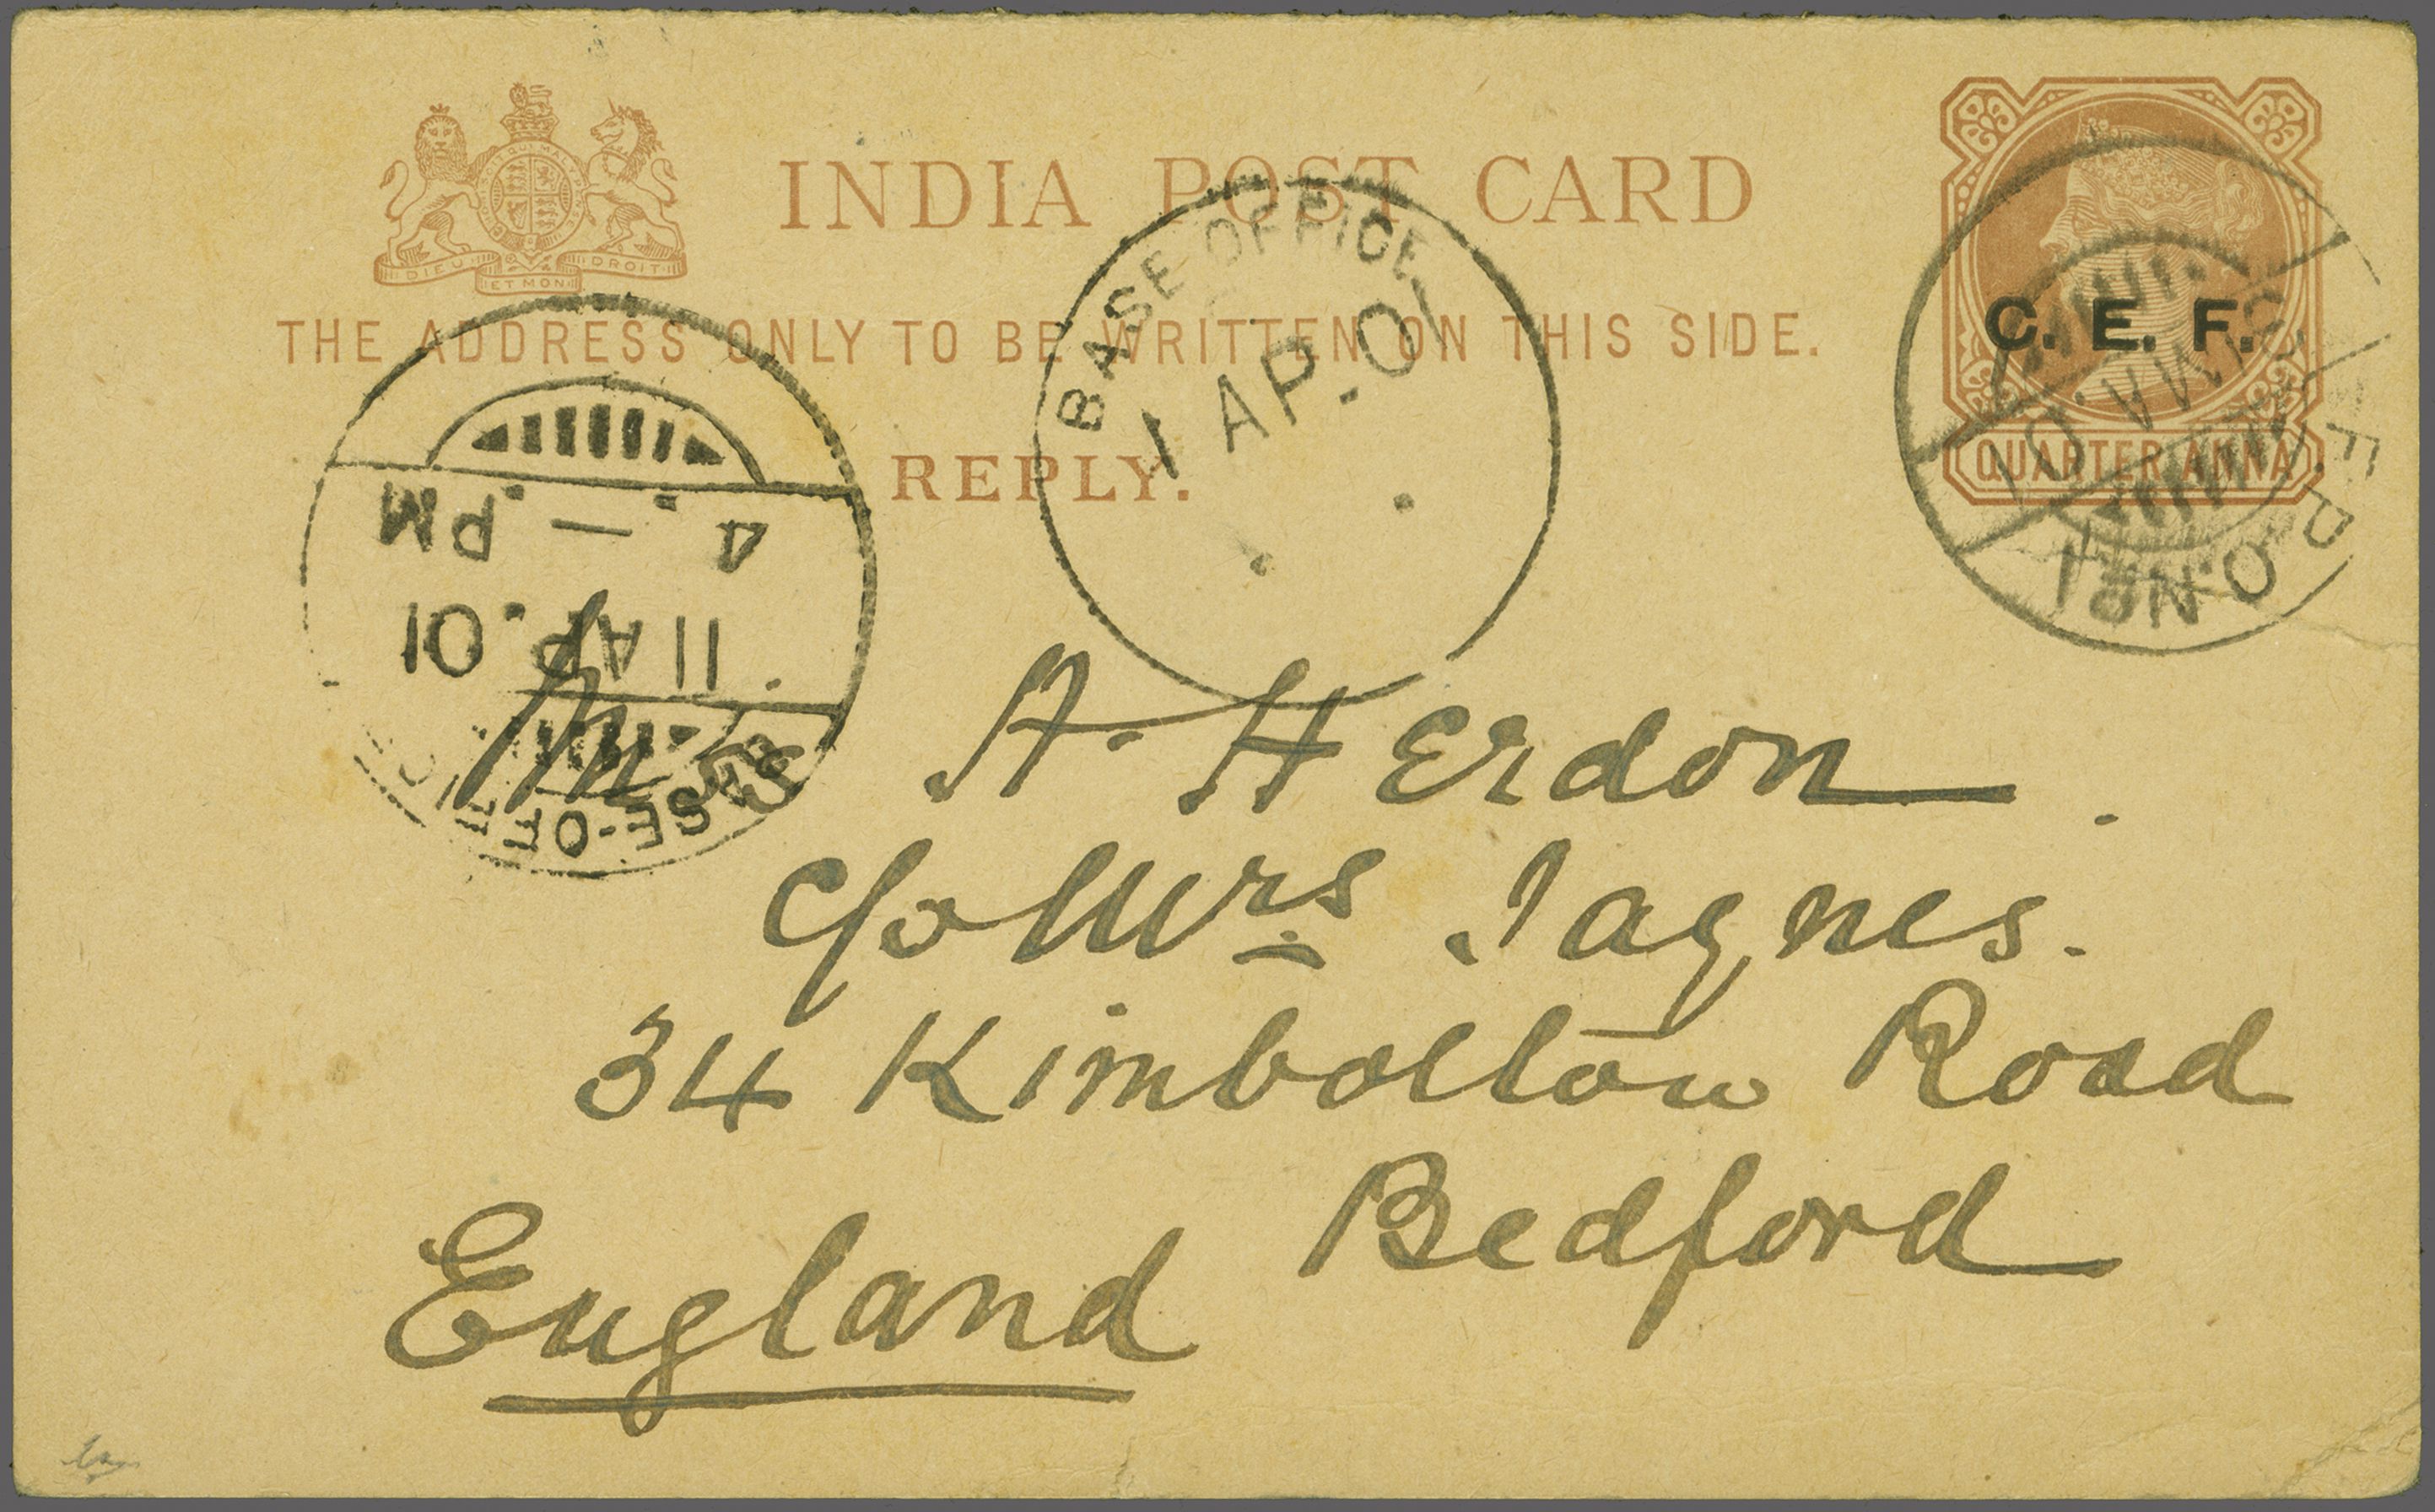 DIEU ET MON DROIT
INDIA POST CARD
THE ADDRESS ONLY TO BE WRITTEN ON THIS SIDE.
REPLY.
C. E. F.
QUARTER ANNA
F.P.O. No 1
MA .01
BASE OFFICE
1 AP.01
BASE-OFFICE
11 AP.01
4 — PM
A. Herdon
C/o Mrs Jaynes.
34 Kimbolton Road
Bedford
England